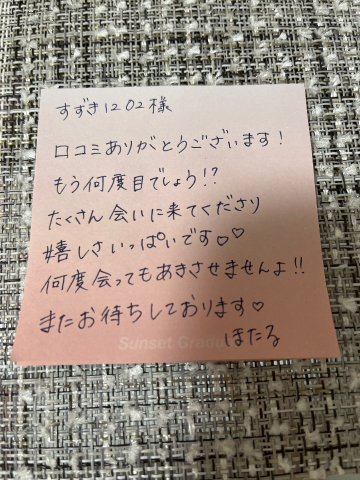 すずき1202様
口コミありがとうございます!
もう何度目でしょう!?
たくさん会いに来てくださり
嬉しさいっぱいです♡♡
何度会ってもあきさせませんよ!!
またお待ちしております♡
Sunset.Gradu
ほたる